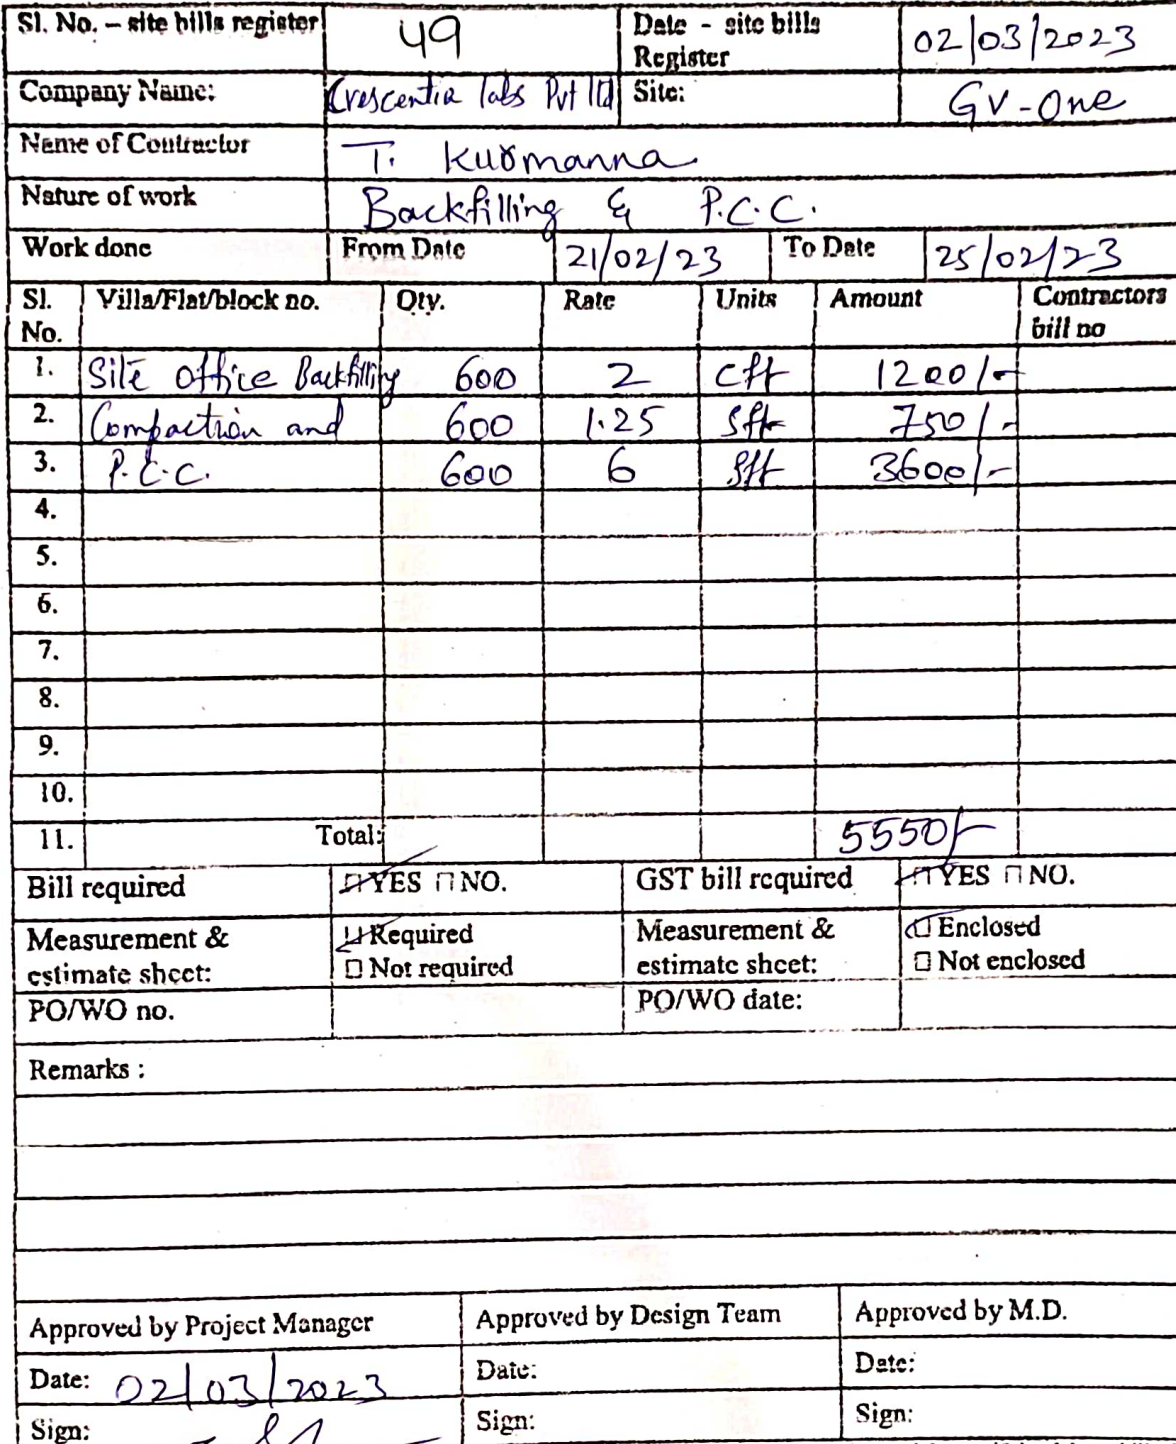 Sl. No. – site bills register 49 Date - site bills Register 02/03/2023
Company Name: Crescentia labs Pvt ltd Site: GV-One
Name of Contractor T. Kurmanna
Nature of work Backfilling & P.C.C.
Work done From Date 21/02/23 To Date 25/02/23
Sl. No. Villa/Flat/block no. Qty. Rate Units Amount Contractors bill no
1. Site office Backfilling 600 2 cft 1200/-
2. Compaction and 600 1.25 sft 750/-
3. P.C.C. 600 6 sft 3600/-
4.
5.
6.
7.
8.
9.
10.
11. Total: 5550/-
Bill required YES NO. GST bill required YES NO.
Measurement & estimate sheet: Required Not required Measurement & estimate sheet: Enclosed Not enclosed
PO/WO no. PO/WO date:
Remarks :
Approved by Project Manager Approved by Design Team Approved by M.D.
Date: 02/03/2023 Date: Date:
Sign: Sign: Sign: